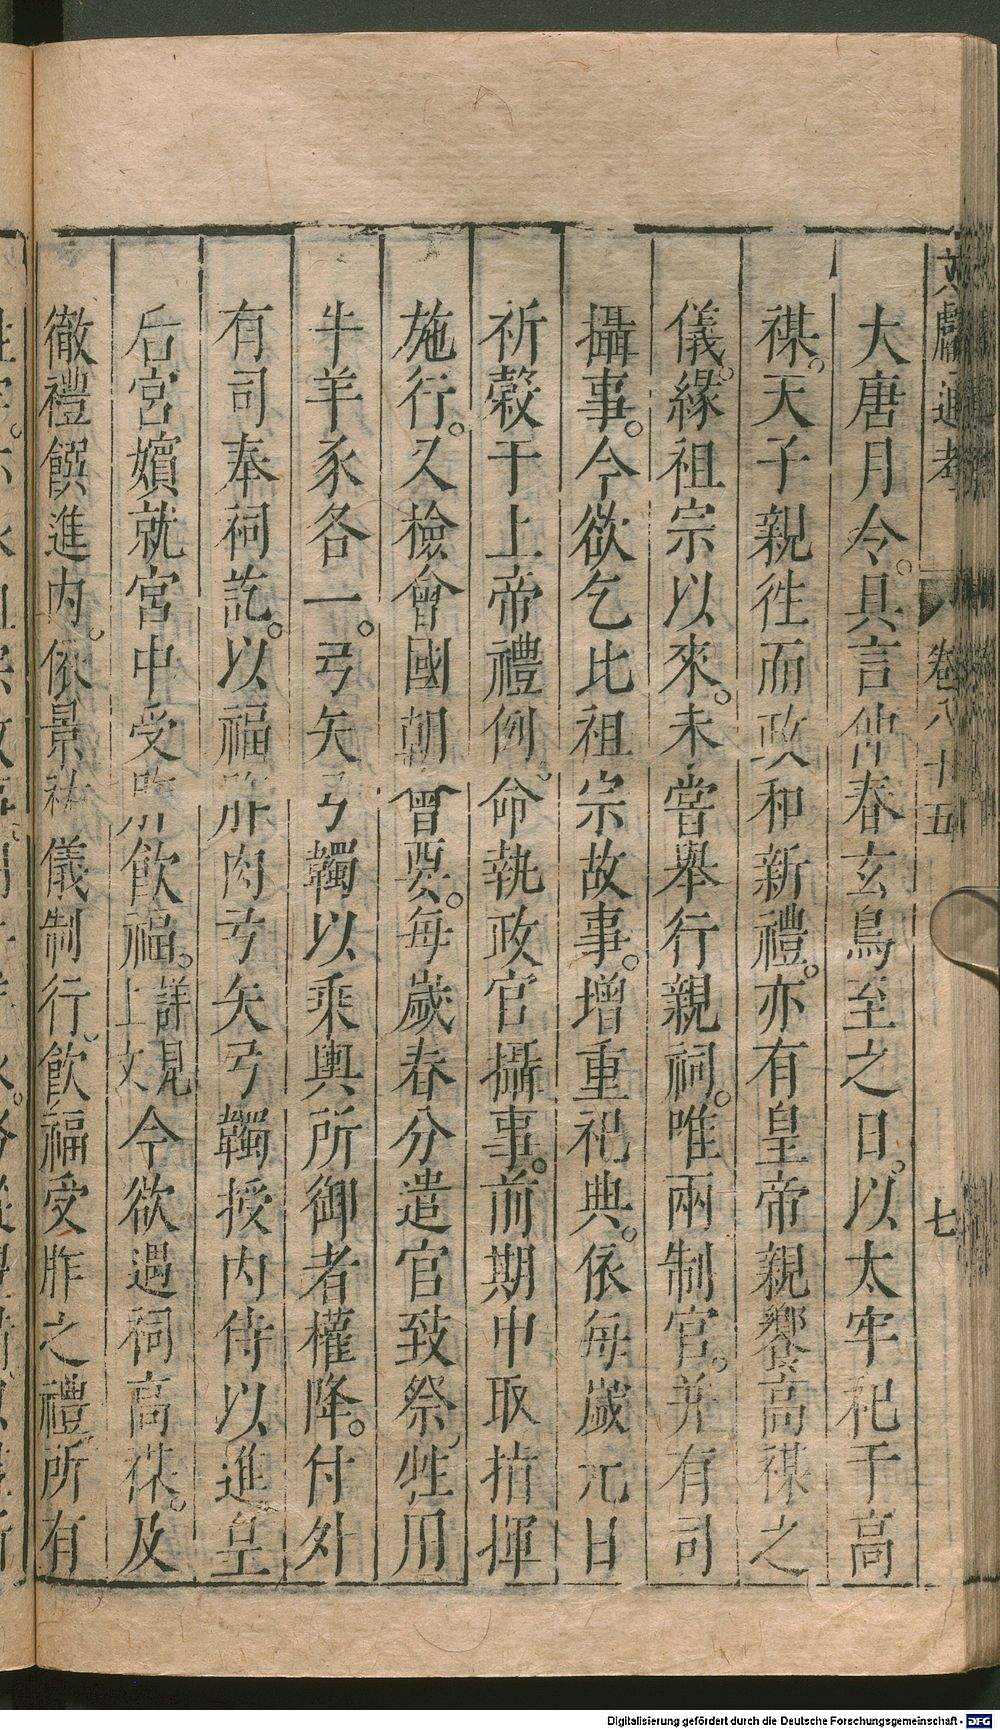 文獻通考 卷八十五 七
大唐月令。具言仲春玄鳥至之日。以太牢祀于高
禖。天子親徃而政和新禮。亦有皇帝親饗高禖之
儀。緣祖宗以來。未嘗舉行親祠。唯兩制官。并有司
攝事。今欲乞比祖宗故事。增重祀典。依每歲元日
祈穀于上帝禮例。命執政官攝事。前期中取指揮
施行。又檢會國朝會要。每歲春分遣官致祭牲用
牛羊豕各一。弓矢弓韣以乘輿所御者權降。付外
有司奉祠訖。以福胙肉弓矢弓韣授內侍以進皇
后宮嬪就宮中受胙飲福。詳見上文今欲遇祠高禖。及
徹禮饌進內。依景祐儀制行。飲福受胙之禮所有
Digitalisierung gefördert durch die Deutsche Forschungsgemeinschaft - DFG